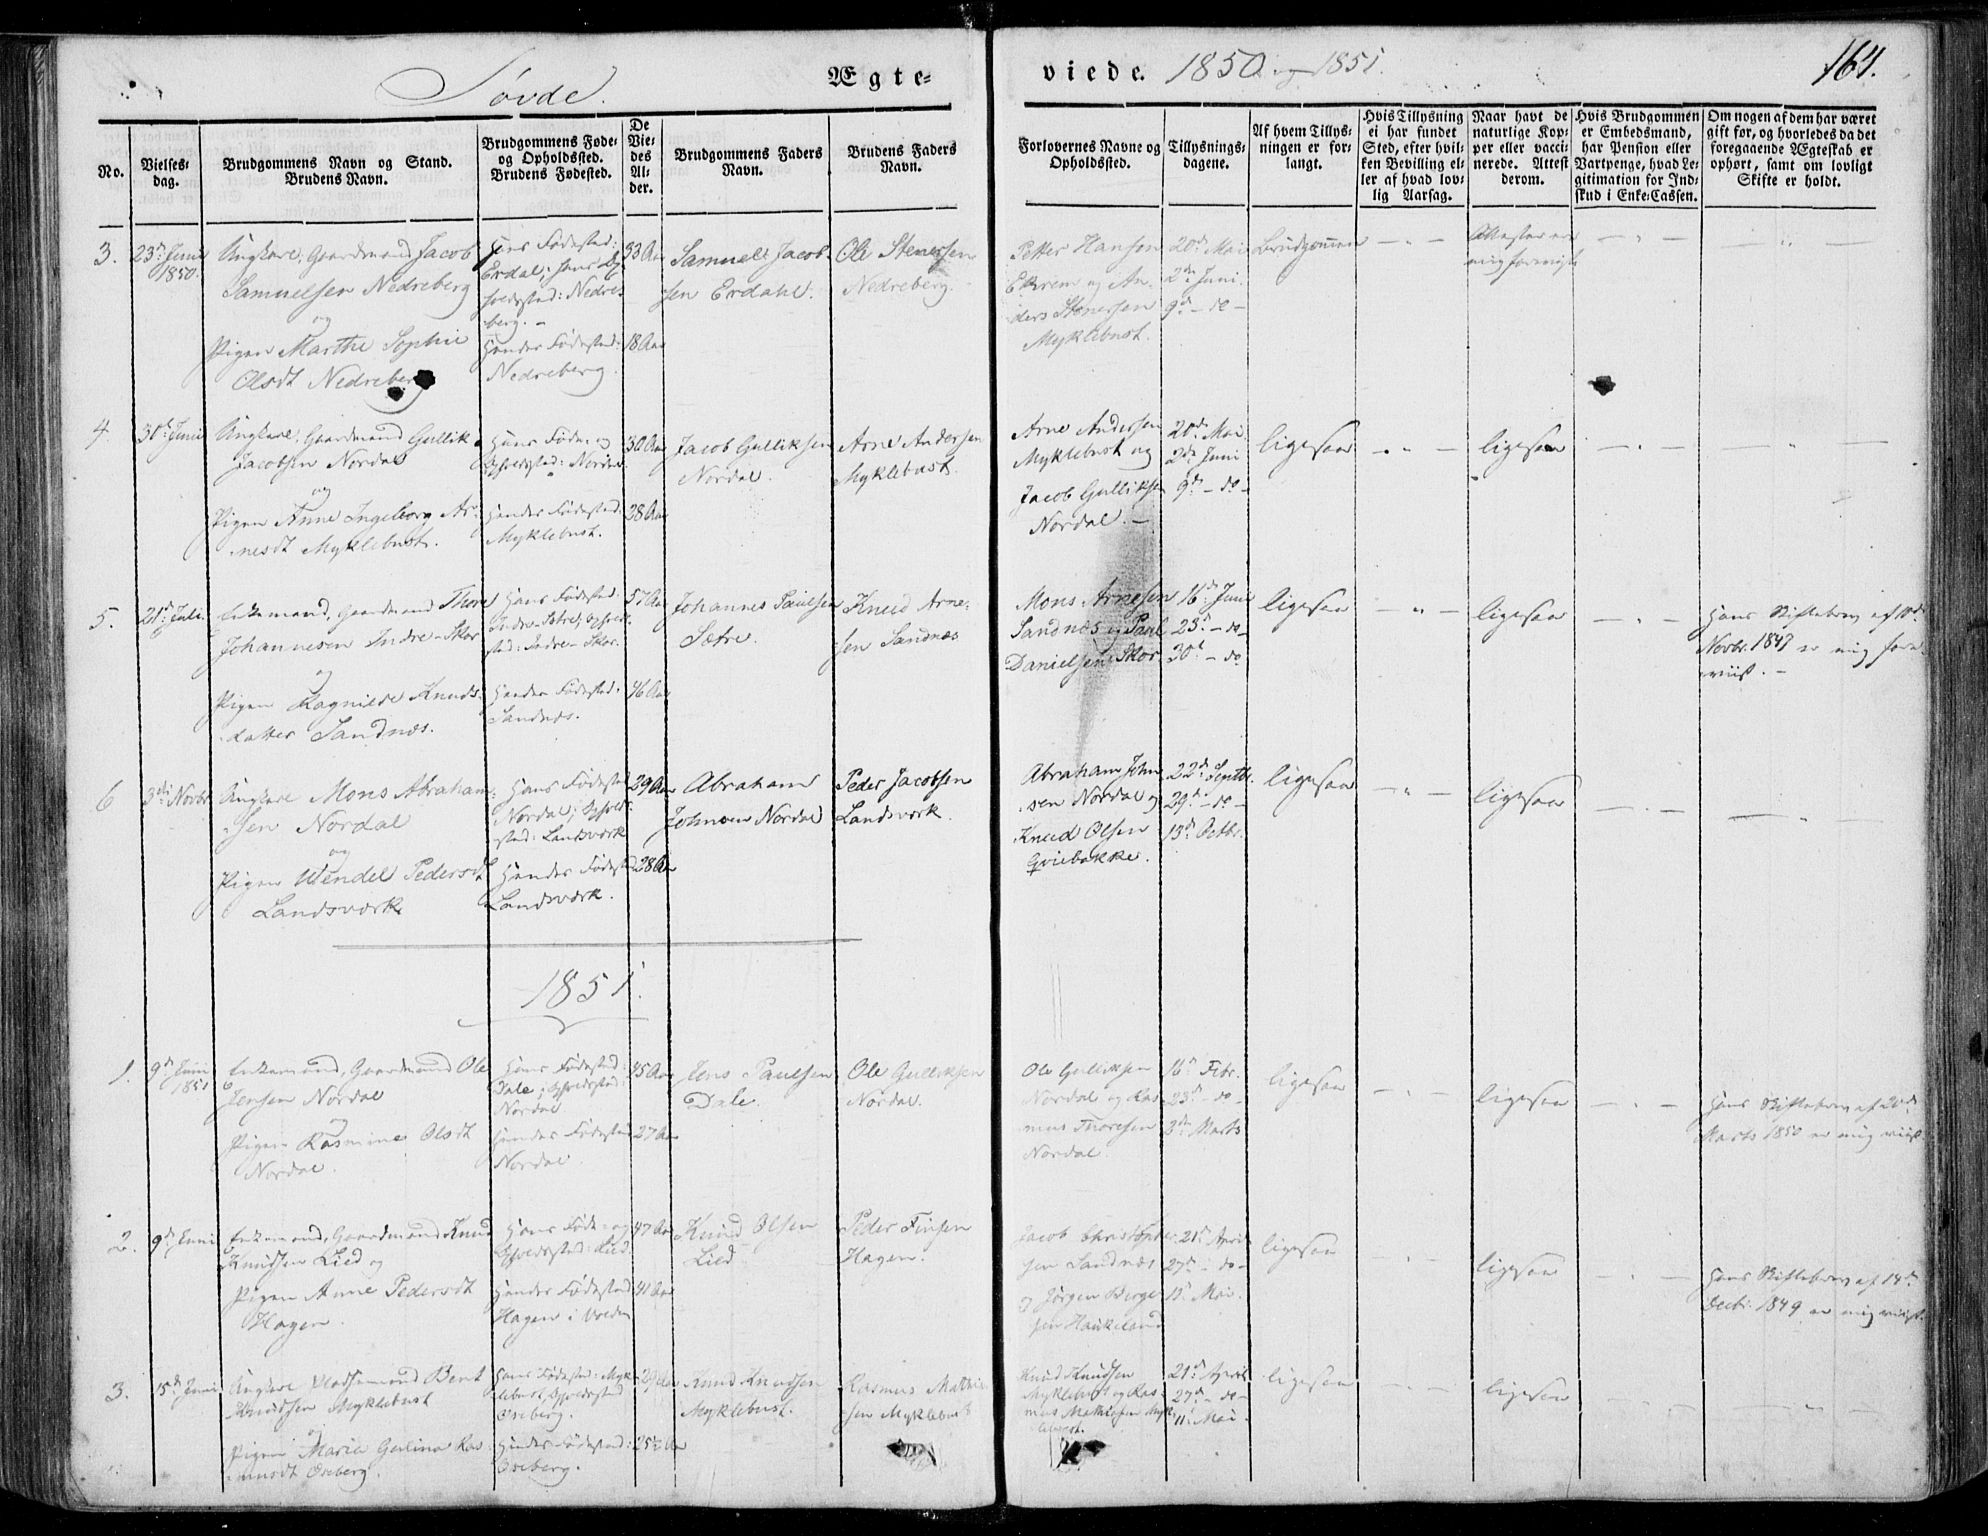 Søvde.
Ægte-
viede. 1850 og 1851.
164.
No.
Vielses-
dag.
Brudgommens Navn og Stand.
Brudens Navn.
Brudgommens Føde-
og Opholdssted.
Brudens Fødested.
De
Vie-
des
Al-
der.
Brudgommens Faders
Navn.
Brudens Faders
Navn.
Forlovernes Navne og
Opholdssted.
Tillysnings-
dagene.
Af hvem Tillys-
ningen er for-
langt.
Hvis Tillysning
ei har fundet
Sted, efter hvil-
ken Bevilling el-
ler af hvad lov-
lig Aarsag.
Naar havt de
naturlige Kop-
per eller vacci-
nerede. Attest
derom.
Hvis Brudgommen
er Embedsmand,
har Pension eller
Vartpenge, hvad Le-
gitimation for Ind-
skud i Enke-Cassen.
Om nogen af dem har været
gift før, og hvorledes da det
foregaaende Ægteskab er
ophørt, samt om lovligt
Skifte er holdt.
3.
23de Juni
1850.
Ungkarl, Gaardmand Jacob
Samuelsen Nedreberg
og
Pigen Marthe Sophie
Olsdt Nedreberg
Hans Fødested:
Erdal; hans Op-
holdssted: Nedre-
berg. -
Hendes Fødested:
Nedreberg.
33 Aar
18 Aar
Samuel Jacob-
sen Erdahl.
Ole Stenersen
Nedreberg.
Petter Hansen
Ekrem og An-
ders Stenersen
Myklebust.
20de Mai
2den Juni.
9de - do -
Brudgommen
Attester ere
mig foreviste
4.
30te Juni
Ungkarl, Gaardmand Gullik
Jacobsen Nordal
og
Pigen Anne Ingeborg Ar-
nesdt Myklebust.
Hans Føde- og
Opholdssted: Nordal.
Hendes Fødested:
Myklebust.
30 Aar
28 Aar
Jacob Gulliksen
Nordal.
Arne Andersen
Myklebust.
Arne Andersen
Myklebust og
Jacob Gulliksen
Nordal. -
20de Mai
2den Juni
9de - do -
ligesaa
ligesaa
5.
21de Juli.
Enkemand, Gaardmand Thore
Johannesen Indre-Skor
og
Pigen Ragnilde Knuds-
datter Sandnæs.
Hans Fødested:
Indre-Sætre, Ophold-
sted: Indre-Skor.
Hendes Fødested:
Sandnæs.
57 Aar
46 Aar
Johannes Paulsen
Sætre.
Knud Arne-
sen Sandnæs
Mons Arnesen
Sandnæs og Paul
Danielsen Skor
16de Juni
23de - do -
30te - do
ligesaa
ligesaa
Hans Skiftebrev af 10de
Novbr. 1847 er mig fore-
viist. -
6
3die Novbr.
Ungkarl Mons Abraham-
sen Nordal
og
Pigen Wendel Pedersdt
Landsværk
Hans Fødested
Nordal; Opholds-
sted: Landsværk
Hendes Fødested
Landsværk.
29 Aar
28 Aar
Abraham
Johnsen Nordal
Peder Jacobsen
Landsværk.
Abraham John-
sen Nordal og
Knud Olsen
Qviebakke.
22de Septbr.
29de - do -
13de Octbr.
ligesaa
ligesaa
1851.
1.
9de Juni
1851
Enkemand, Gaardmand Ole
Jensen Nordal
og
Pigen Rasmine Olsdt
Nordal.
Hans Fødested:
Dale; Opholdssted:
Nordal
Hendes Fødested
Nordal.
45 Aar
27 Aar
Jens Paulsen
Dale.
Ole Gulliksen
Nordal.
Ole Gulliksen
Nordal og Ras-
mus Thoresen
Nordal.
16de Febr.
23de - do -
3die Marts
ligesaa
ligesaa
Hans Skiftebrev af 20de
Marts 1850 er mig viist.
2.
9de Juni
Enkemand, Gaardmand Knud
Knudsen Lied og
Pigen Anne Pedersdt
Hagen.
Hans Føde- og
Opholdssted: Lied.
Hendes Fødested
Hagen i Volden
47 Aar
41 Aar
Knud Olsen
Lied
Peder Finsen
Hagen.
Jacob Christopher-
sen Sandnæs
og Jørgen Berge-
sen Haukeland
21de April
27de - do -
11te Mai.
ligesaa
ligesaa
Hans Skiftebrev af 14de
Decbr. 1849 er mig viist.
3.
15de Juni
Ungkarl Pladsemand Bent
Knudsen Myklebust
og
Pigen Maria Gulina Ras-
musdt Oseberg.
Hans Fødested: Myk-
lebust, Opholdssted
Oseberg.
Hendes Fødested:
Oseberg.
29 Aar
25 Aar
Knud Knudsen
Myklebust.
Rasmus Mathia-
sen Myklebust
Knud Knudsen
Myklebust og Ras-
mus Mathiasen Myk-
lebust.
21de April
27de - do -
11te Mai.
ligesaa
ligesaa